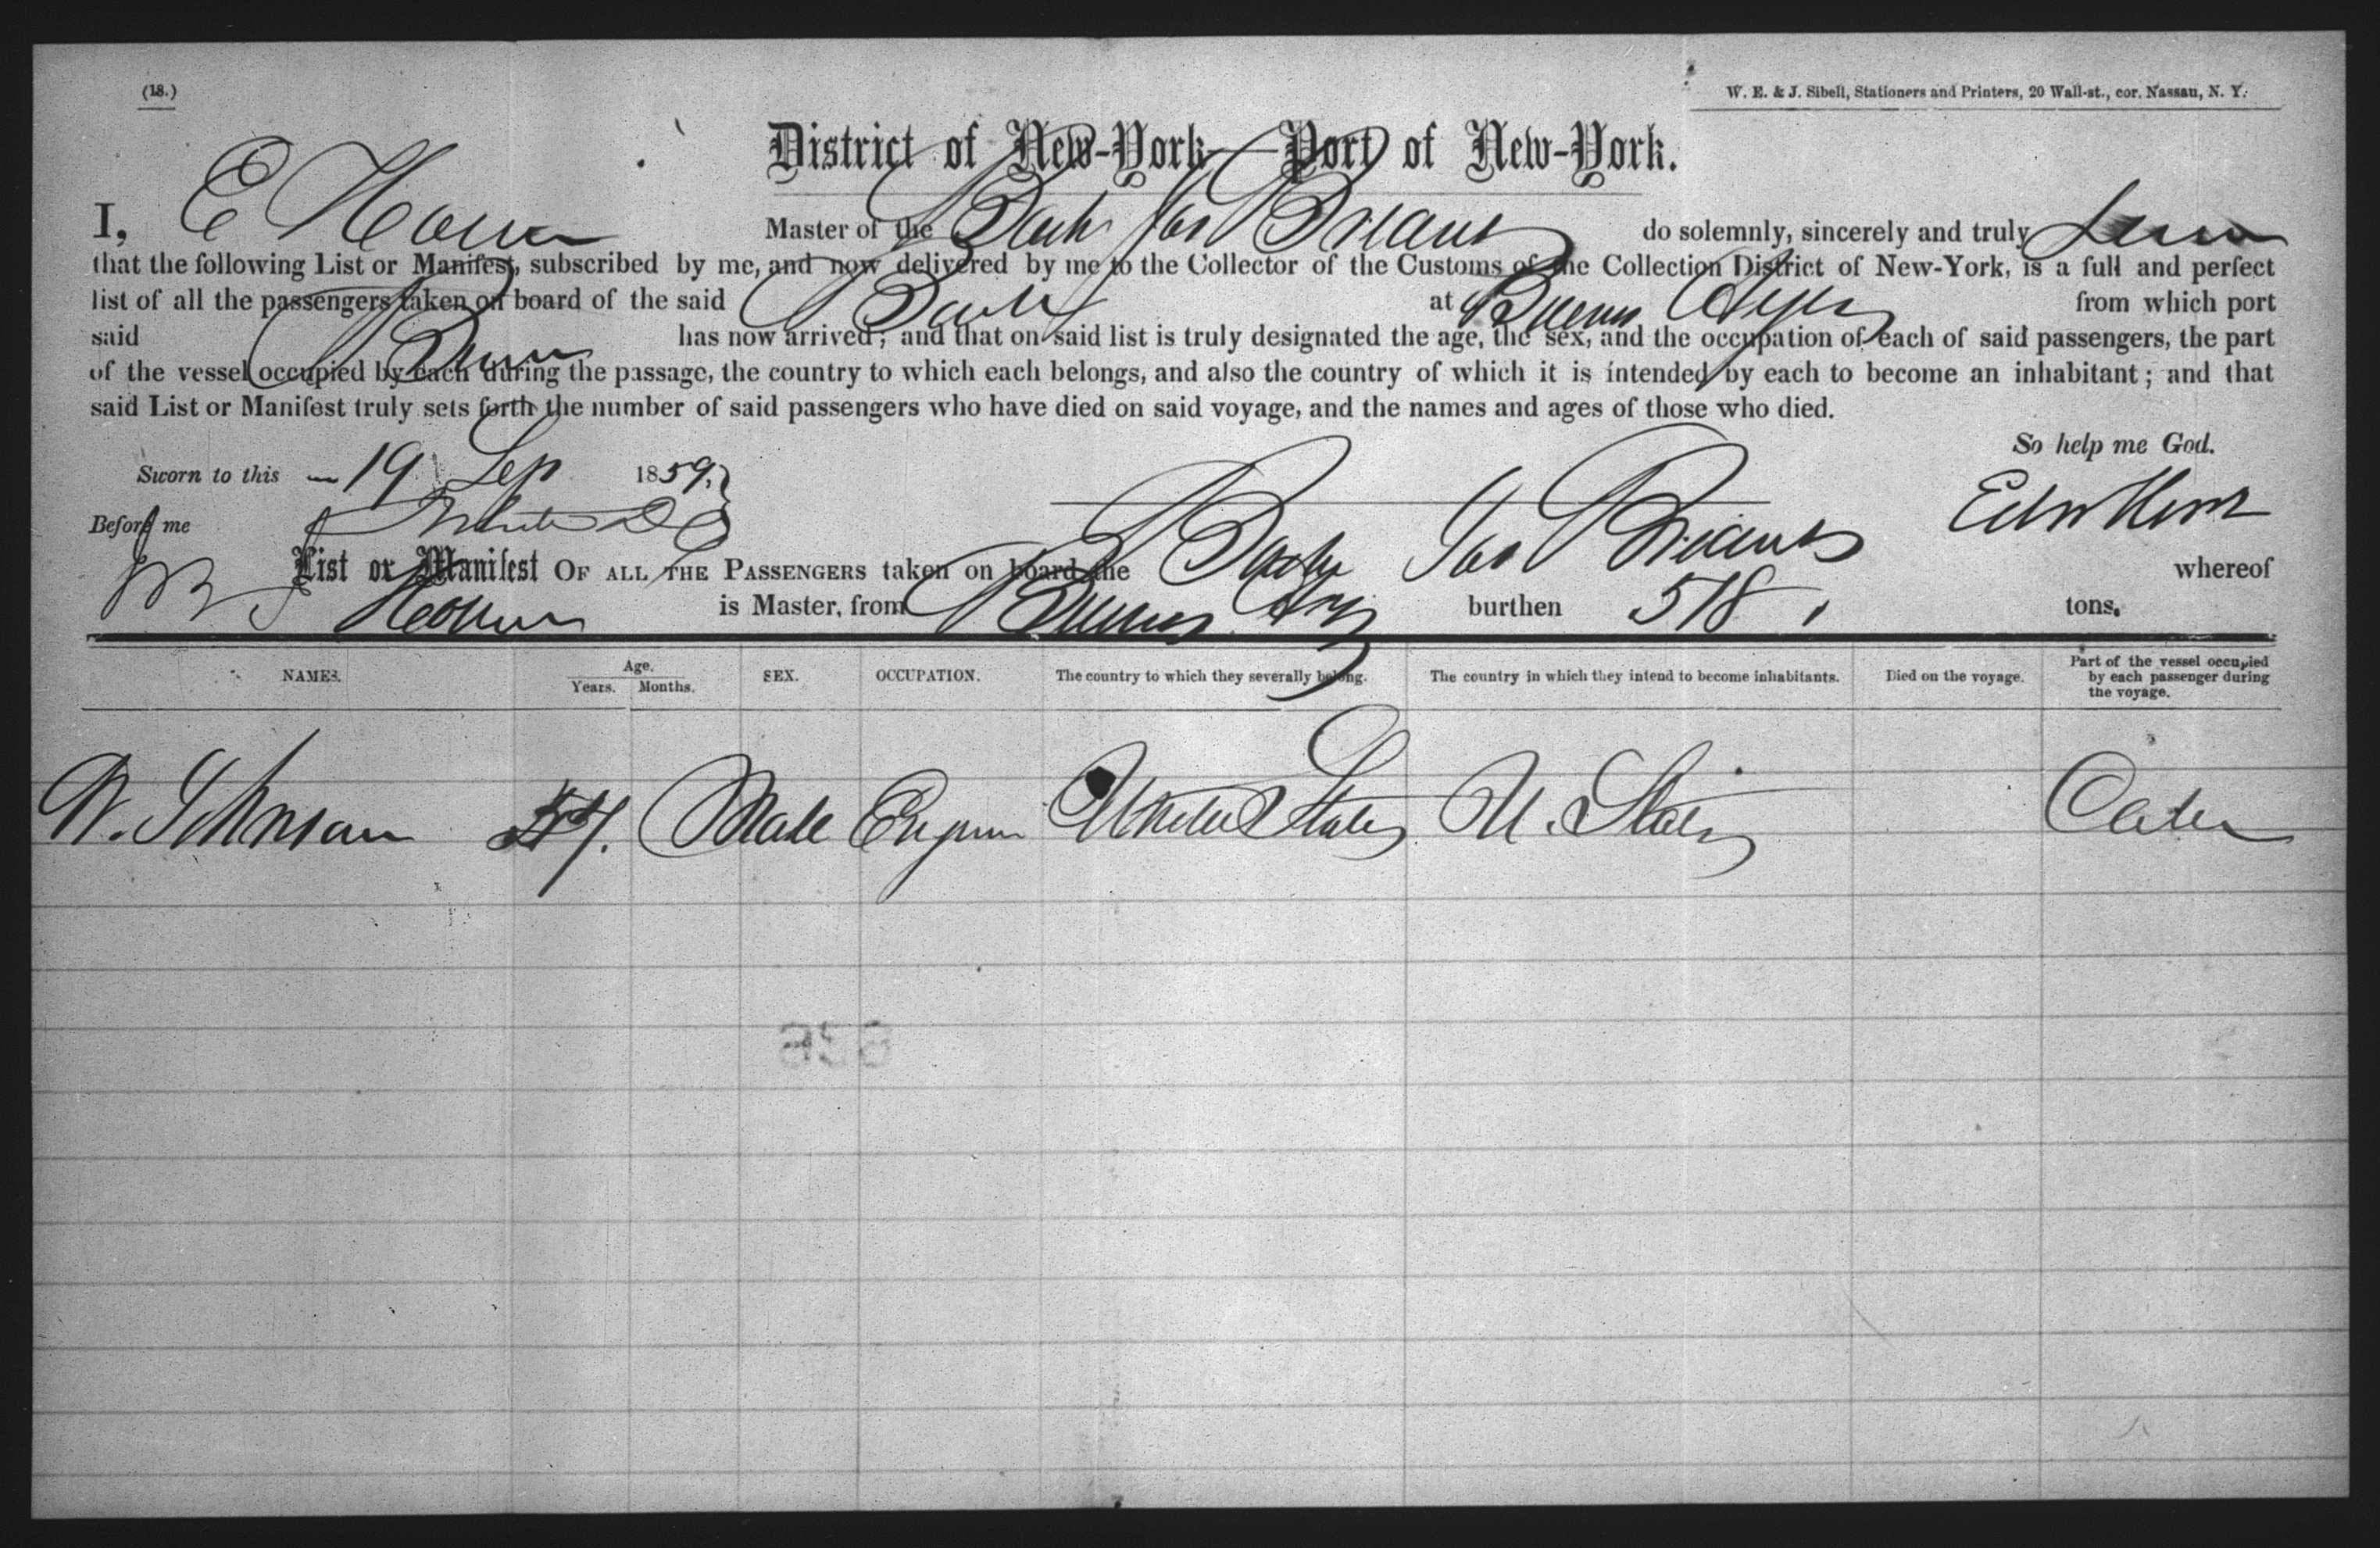 (18.)
W. E. & J. Sibell, Stationers and Printers, 20 Wall-st., cor. Nassau, N. Y.
District of New-York—Port of New-York.
I, E Master of the Bark Jas do solemnly, sincerely and truly
that the following List or Manifest, subscribed by me, and now delivered by me to the Collector of the Customs of the Collection District of New-York, is a full and perfect
list of all the passengers taken on board of the said Bark at Buenos Ayres from which port
said has now arrived; and that on said list is truly designated the age, the sex, and the occupation of each of said passengers, the part
of the vessel occupied by each during the passage, the country to which each belongs, and also the country of which it is intended by each to become an inhabitant; and that
said List or Manifest truly sets forth the number of said passengers who have died on said voyage, and the names and ages of those who died.
So help me God.
Sworn to this 19 Sep 1859.
Before me
List or Manifest OF ALL THE PASSENGERS taken on board the Bark Jas whereof
is Master, from Buenos burthen 518 tons.
NAMES. Age. Years. Months. SEX. OCCUPATION. The country to which they severally belong. The country in which they intend to become inhabitants. Died on the voyage. Part of the vessel occupied by each passenger during the voyage.
W. Johnson Male United States U. States